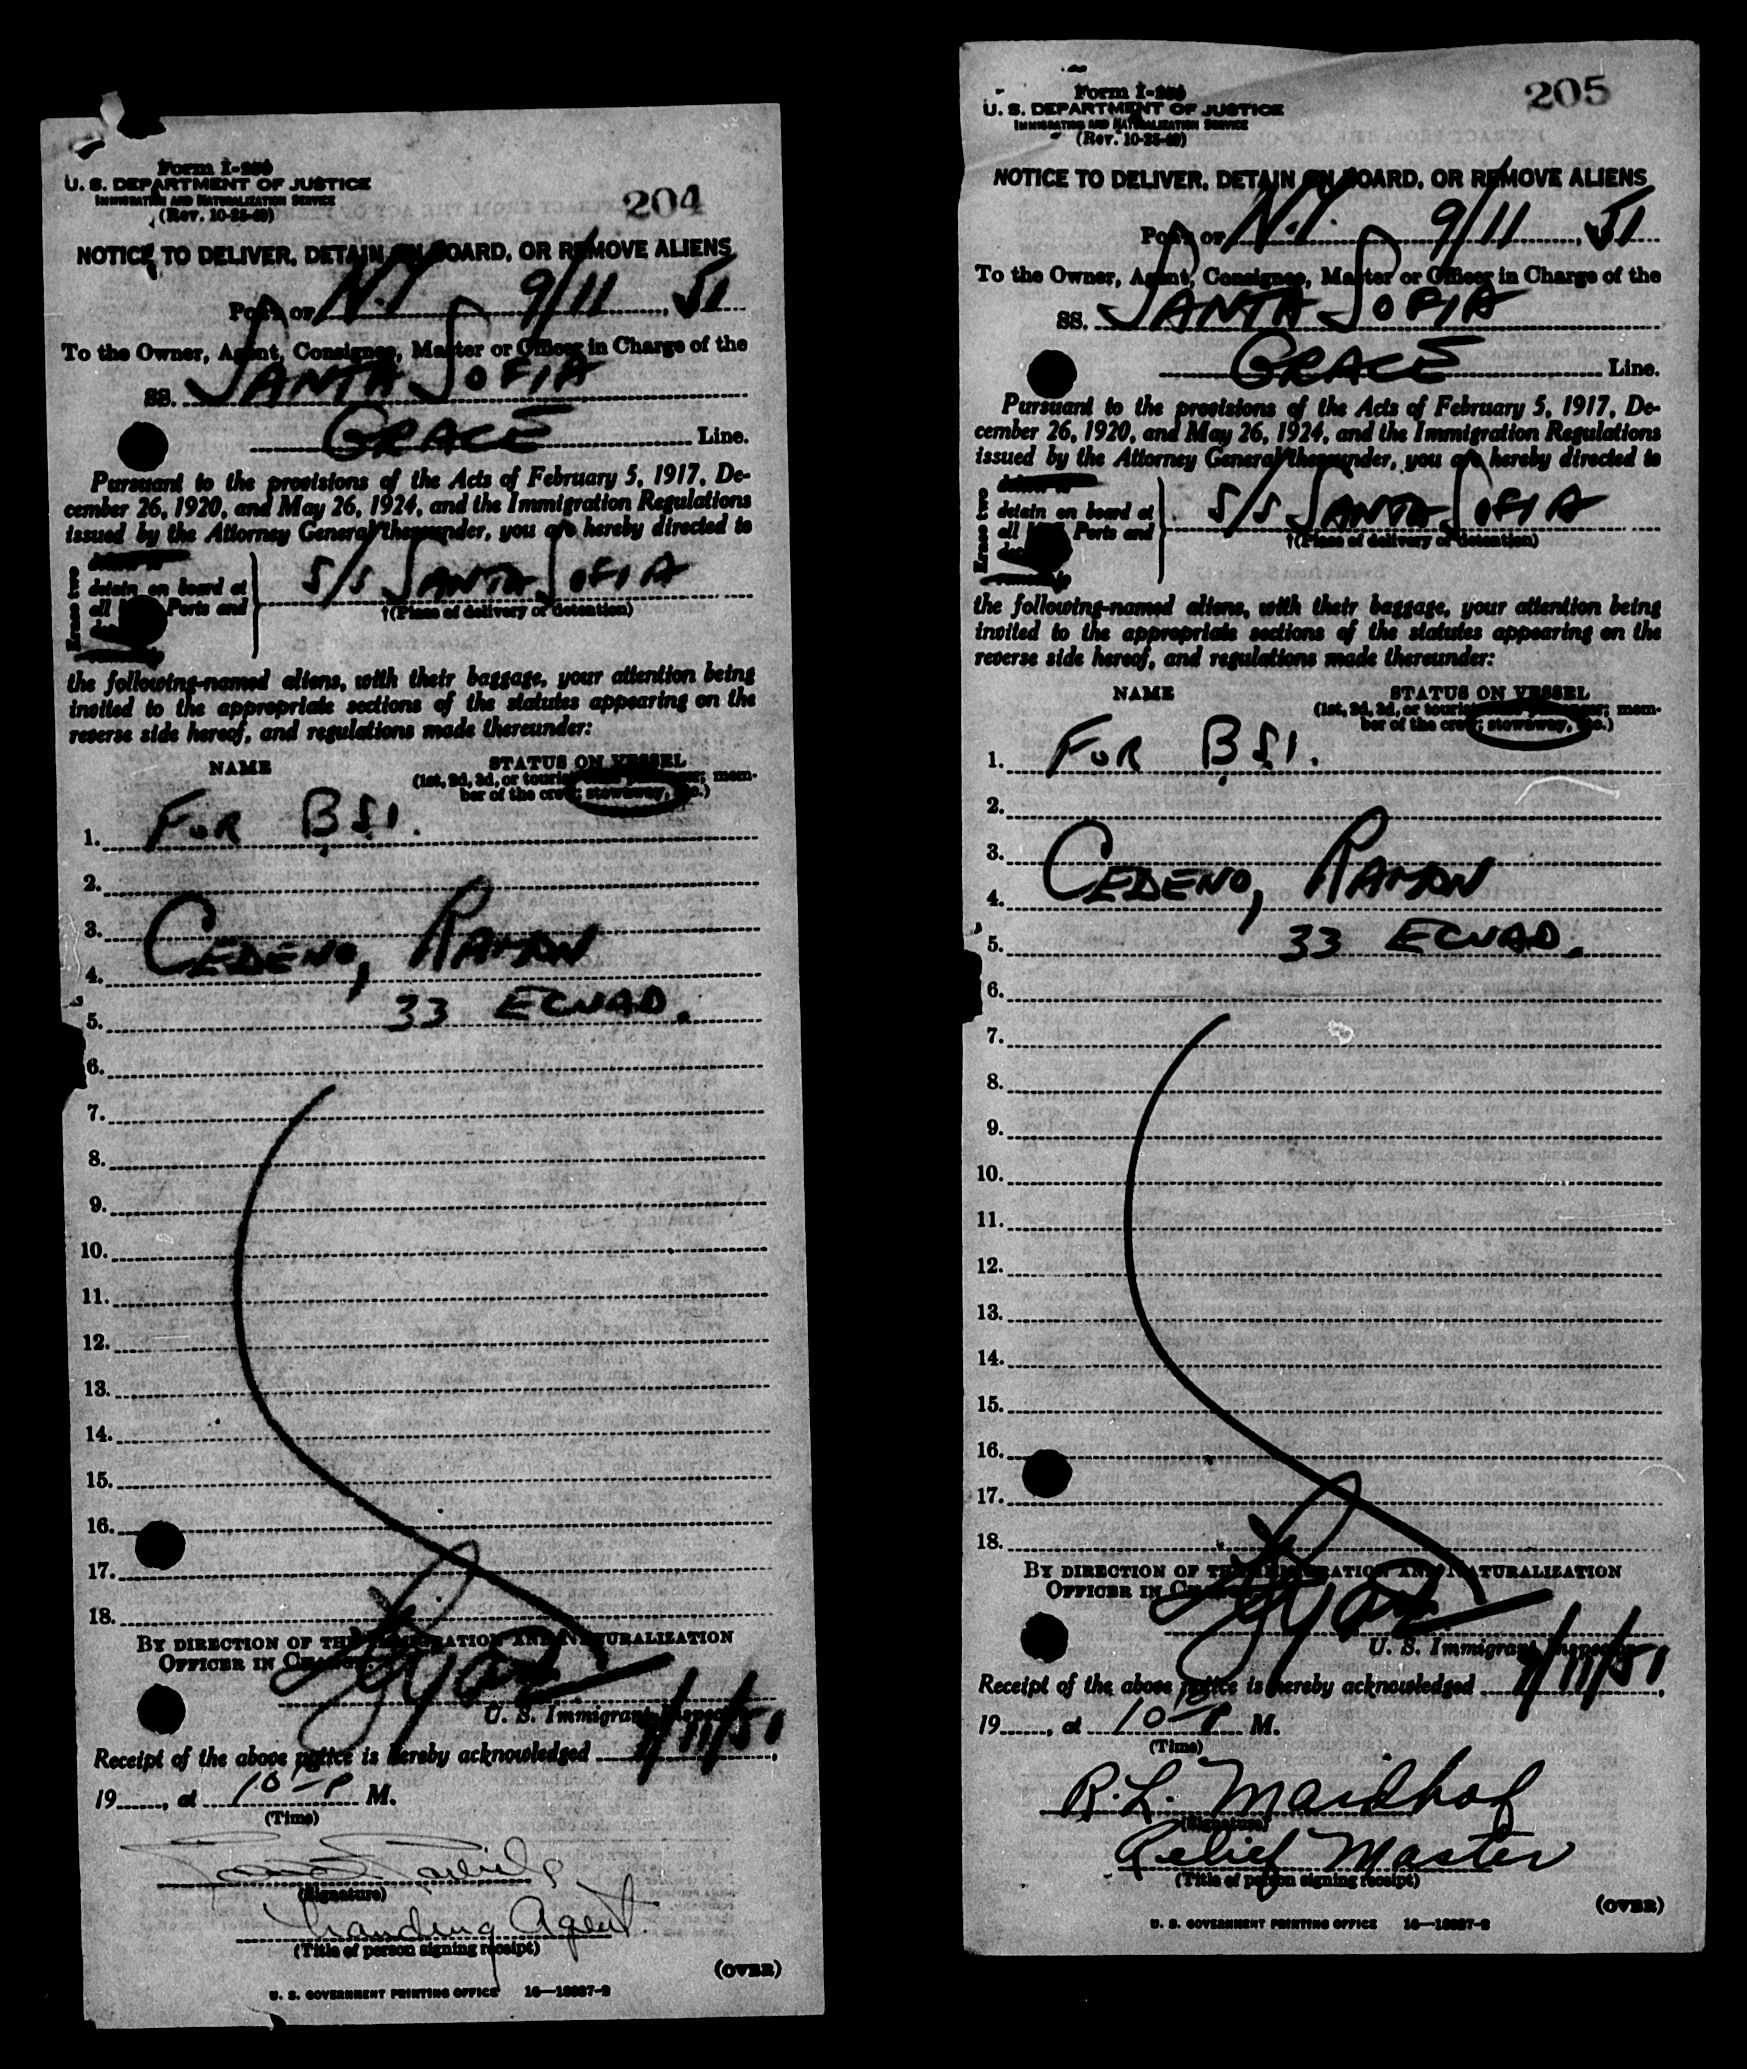 204
Form I-259
U. S. DEPARTMENT OF JUSTICE
IMMIGRATION AND NATURALIZATION SERVICE
(Rev. 10-25-49)
NOTICE TO DELIVER, DETAIN ON BOARD, OR REMOVE ALIENS
Port of N.Y. 9/11, 51
To the Owner, Agent, Consignee, Master or Officer in Charge of the
SS. SANTA SOFIA
GRACE Line.
Pursuant to the provisions of the Acts of February 5, 1917, De-
cember 26, 1920, and May 26, 1924, and the Immigration Regulations
issued by the Attorney General thereunder, you are hereby directed to
Erase two
deliver to
detain on board at
all Ports and
S/S SANTA SOFIA
†(Place of delivery or detention)
the following-named aliens, with their baggage, your attention being
invited to the appropriate sections of the statutes appearing on the
reverse side hereof, and regulations made thereunder:
NAME STATUS ON VESSEL
(1st, 2d, 3d, or tourist class passenger; mem-
ber of the crew; stowaway, etc.)
1. FOR B.S.I.
2.
3.
4. CEDENO, RAMON
5. 33 ECUAD.
6.
7.
8.
9.
10.
11.
12.
13.
14.
15.
16.
17.
18.
BY DIRECTION OF THE IMMIGRATION AND NATURALIZATION
OFFICER IN CHARGE
U. S. Immigrant Inspector
Receipt of the above notice is hereby acknowledged 9/11/51,
19......, at 10 - P M.
(Time)
(Signature)
Agent
(Title of person signing receipt)
(OVER)
U. S. GOVERNMENT PRINTING OFFICE 16—18987-2
205
Form I-259
U. S. DEPARTMENT OF JUSTICE
IMMIGRATION AND NATURALIZATION SERVICE
(Rev. 10-25-49)
NOTICE TO DELIVER, DETAIN ON BOARD, OR REMOVE ALIENS
Port of N.Y. 9/11, 51
To the Owner, Agent, Consignee, Master or Officer in Charge of the
SS. SANTA SOFIA
GRACE Line.
Pursuant to the provisions of the Acts of February 5, 1917, De-
cember 26, 1920, and May 26, 1924, and the Immigration Regulations
issued by the Attorney General thereunder, you are hereby directed to
Erase two
deliver to
detain on board at
all Ports and
S/S SANTA SOFIA
†(Place of delivery or detention)
the following-named aliens, with their baggage, your attention being
invited to the appropriate sections of the statutes appearing on the
reverse side hereof, and regulations made thereunder:
NAME STATUS ON VESSEL
(1st, 2d, 3d, or tourist class passenger; mem-
ber of the crew; stowaway, etc.)
1. FOR B.S.I.
2.
3.
4. CEDENO, RAMON
5. 33 ECUAD.
6.
7.
8.
9.
10.
11.
12.
13.
14.
15.
16.
17.
18.
BY DIRECTION OF THE IMMIGRATION AND NATURALIZATION
OFFICER IN CHARGE
U. S. Immigrant Inspector
Receipt of the above notice is hereby acknowledged 9/11/51,
19......, at 10 - P M.
(Time)
R. L. Maidhof
(Signature)
Relief Master
(Title of person signing receipt)
(OVER)
U. S. GOVERNMENT PRINTING OFFICE 16—18987-2